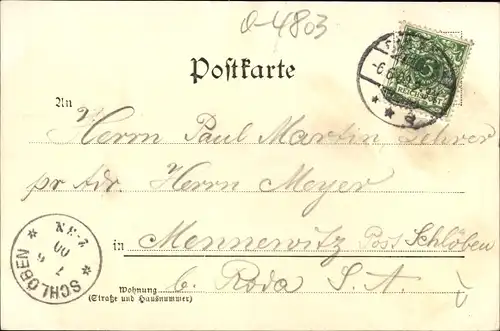 0-4803
Postkarte
5
REICHSPOST
-6 6
a
An
Herrn Paul Martin Lehrer
pr Adr. Herrn Meyer
in Mennewitz Post Schlöben
b. Roda S. A.
Wohnung
(Straße und Hausnummer)
SCHLÖBEN
7 6
00